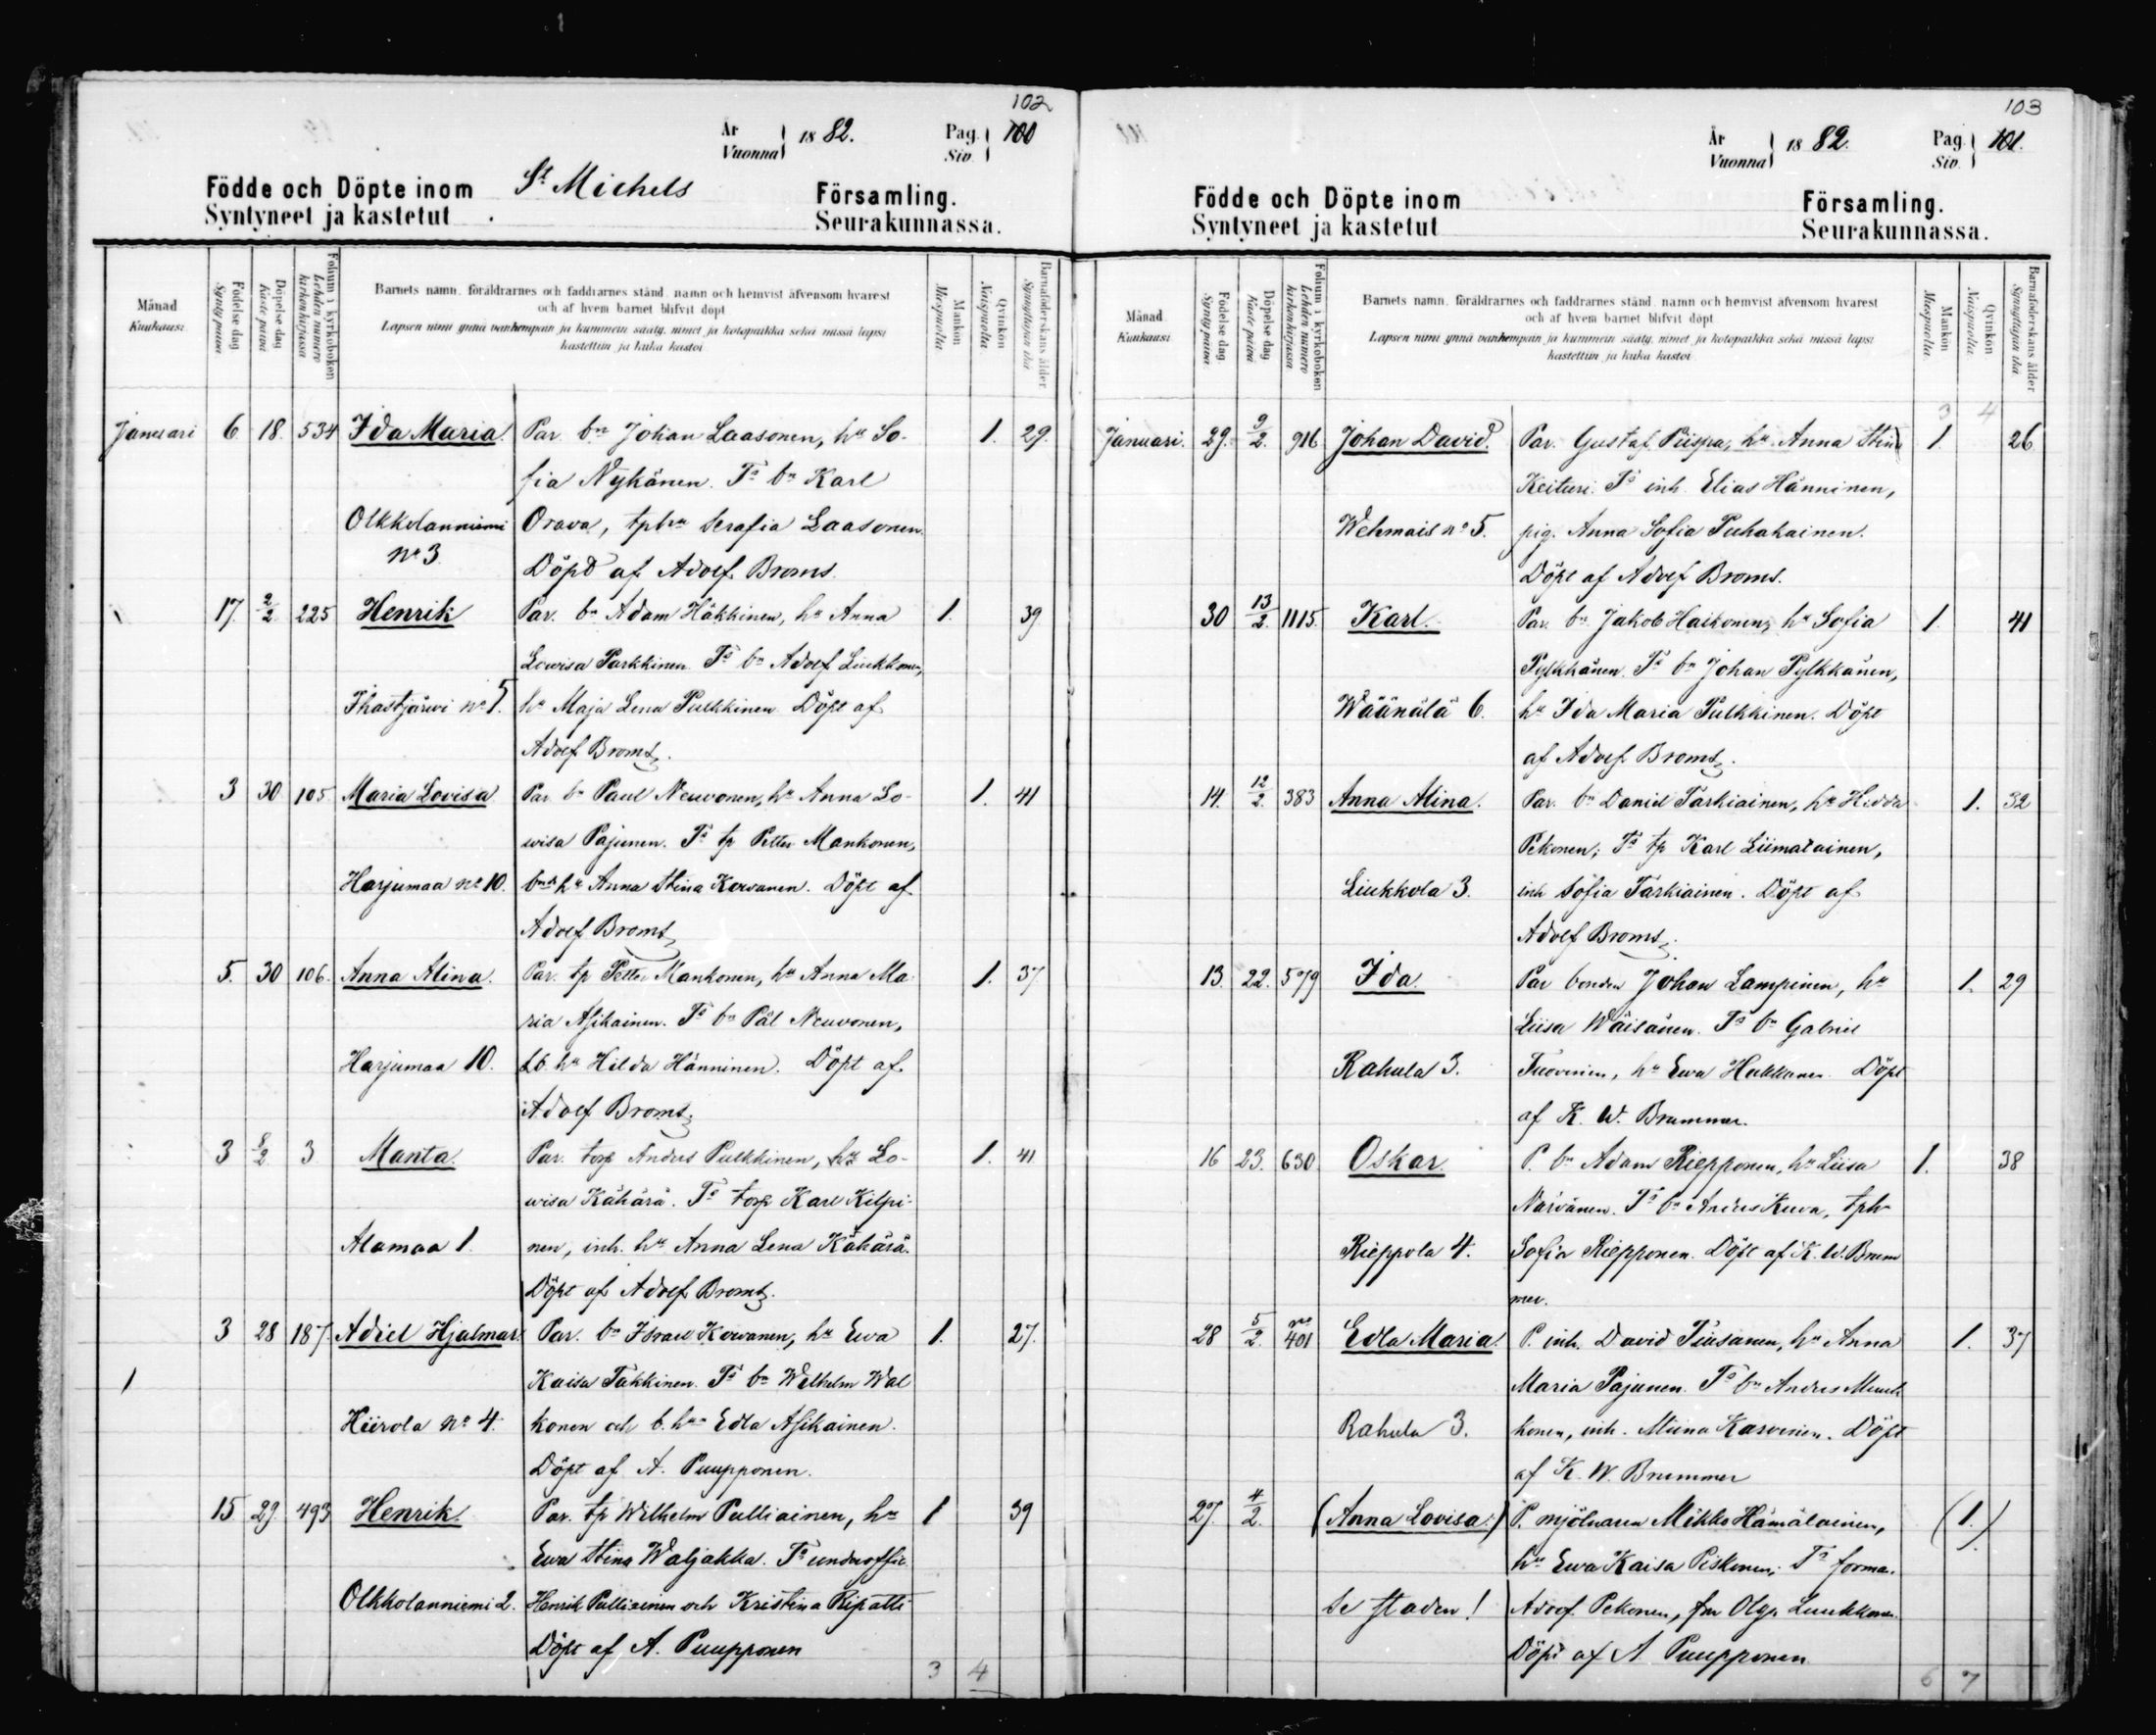 102
År
Vuonna
1882.
Pag.
Siv.
100
Födde och Döpte inom St Michels Församling.
Syntyneet ja kastetut Seurakunnassa.
Månad
Kuukausi
Födelse dag
Synty päivä
Döpelse dag
Kaste päivä
Folium i kyrkoboken
Lehden numero kirkonkirjassa
Barnets namn, föräldrarnes och faddrarnes stånd, namn och hemvist äfvensom hvarest
och af hvem barnet blifvit döpt
Lapsen nimi ynnä vanhempain ja kummein sääty, nimet ja kotopaikka sekä missä lapsi
kastettiin ja kuka kastoi
Mankön
Miespuolia
Qvinkön
Naispuolia
Barnaföderskans ålder
Synnyttäjän ikä
Januari 6 18. 534 Ida Maria. Par. bn Johan Laasonen, hu So- 1. 29.
fia Nykänen. Ts bn Karl
Olkkolanniemi Orava, tphu Serafia Laasonen.
No 3. Döpt af Adolf Broms.
17. 2/2 225 Henrik Par. bn Adam Häkkinen, hu Anna 1. 39
Lowisa Parkkinen. Ts bn Adolf Liukkonen,
Ihastjärwi No 1. 5 hu Maja Lena Pulkkinen. Döpt af
Adolf Broms.
3 30 105 Maria Lovisa Par. bn Paul Neuvonen, hu Anna Lo- 1. 41
wisa Pajunen. Ts tp Petter Mankonen,
Harjumaa No 10. bndhu Anna Stina Korvanen. Döpt af
Adolf Broms.
5. 30 106. Anna Alina. Par. tp Petter Mankonen, hu Anna Ma- 1. 37
ria Asikainen. Ts bn Pål Neuvonen,
Harjumaa 10. hu Hilda Hänninen. Döpt af
Adolf Broms.
3 8/2 3 Manta. Par. torp Anders Pulkkinen, hu Lo- 1. 41
wisa Kähärä. Ts torp Karl Kilpi-
Alamaa 1. nen, inh. hu Anna Lena Kähärä.
Döpt af Adolf Broms.
3 28 187. Adiel Hjalmar Par. bn Israel Korvanen, hu Ewa 1. 27.
Kaisa Takkinen. Ts bn Wilhelm Wal
Hiirola No 4. konen och b. hu Edla Asikainen.
Döpt af A. Puupponen.
15 29. 493 Henrik Par. tp Wilhelm Pulliainen, hu 1 39
Ewa Stina Waljakka. Ts underoffic.
Olkkolanniemi 2. Henrik Pulliainen och Kristina Ripatti
Döpt af A. Puupponen
3 4
103
År
Vuonna
1882.
Pag.
Siv.
101.
Födde och Döpte inom Församling.
Syntyneet ja kastetut Seurakunnassa.
Månad
Kuukausi
Födelse dag
Synty päivä
Döpelse dag
Kaste päivä
Folium i kyrkoboken
Lehden numero kirkonkirjassa
Barnets namn, föräldrarnes och faddrarnes stånd, namn och hemvist äfvensom hvarest
och af hvem barnet blifvit döpt
Lapsen nimi ynnä vanhempain ja kummein sääty, nimet ja kotopaikka sekä missä lapsi
kastettiin ja kuka kastoi
Mankön
Miespuolia
Qvinkön
Naispuolia
Barnaföderskans ålder
Synnyttäjän ikä
3 4
Januari. 29. 9/2. 916 Johan David. Par. Gustaf Piispa, hu Anna Stina 1. 26
Keituri. Ts inh. Elias Hänninen,
Wehmais No 5. pig. Anna Sofia Puhakainen.
Döpt af Adolf Broms.
30 13/2. 1115. Karl. Par. bn Jakob Haikonen, hu Sofia 1. 41
Pylkkänen. Ts bn Johan Pylkkänen,
Wäänälä 6. hu Ida Maria Pulkkinen. Döpt
af Adolf Broms.
14. 12/2. 383 Anna Alina. Par. bn Daniel Tarkiainen, hu Hedda 1. 32
Pekonen; Ts tp Karl Liimatainen,
Liukkola 3. inh Sofia Tarkiainen. Döpt af
Adolf Broms.
13. 22. 579 Ida. Par bonden Johan Lampinen, hu 1. 29
Liisa Wäisänen. Ts bn Gabriel
Rahula 3. Tuovinen, hu Ewa Hakkanen. Döpt
af K. W. Brummer.
16 23. 630 Oskar. P. bn Adam Riepponen, hu Liisa 1. 38
Närvänen. Ts bn Anders Kuva, tph
Rieppola 4. Sofia Riepponen. Döpt af K. W. Brum
mer.
28 5/2. 401 Edla Maria. P. inh. David Tiusanen, hu Anna 1. 37
Maria Pajunen. Ts bn Anders
Rahula 3. konen, inh. Miina Karvinen. Döpt
af K. W. Brummer
27. 4/2. (Anna Lovisa.) P. mjölnaren Mikko Hämäläinen, (1.)
hu Ewa Kaisa Piskonen; Ts forma.
Se staden! Adolf Pekonen, frn Olga Luukkonen.
Döpt af A Puupponen
6 7